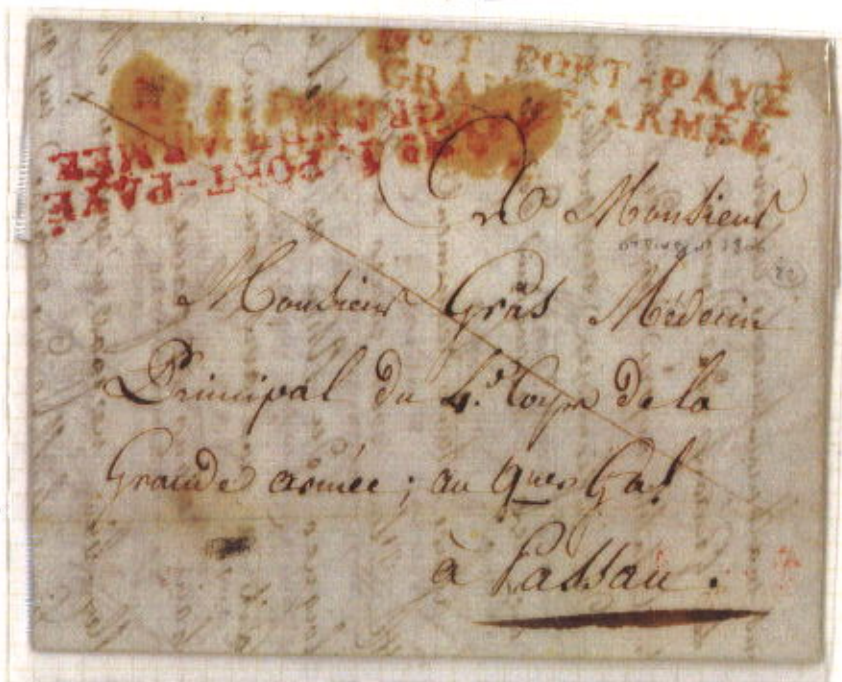 N° 1 PORT-PAYÉ
GRANDE-ARMÉE
N° 1 PORT-PAYÉ
GRANDE-ARMÉE
A Monsieur
Monsieur Gras Médecin
Principal du 4.e Corps de la
Grande armée ; au quer Gal
à Passau .